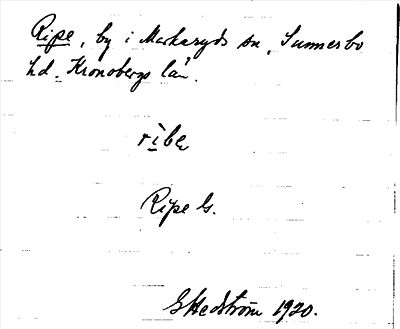 Ripe, by i Markaryds sn, Sunnerbo
hd. Kronobergs län.
rìbe
Ripe G.
GHedström 1920.